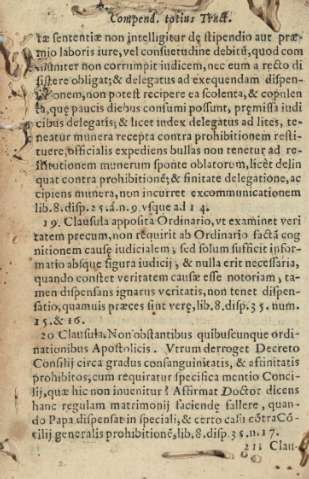 Compend. totius Tract.
tæ sententiæ non intelligitur dę stipendio aut præ-
mio laboris iure, vel consuetudine debitũ, quod com
muniter non corrumpit iudicem, nec eum a recto di
sistere obligat; & delegatus ad exequendam dispen-
tionem, non potest recipere ea scolenta, & copulen
ta, quę paucis diebus consumi possunt, pręmissa iudi
cibus delegatis; & licet index delegatus ad lites, te-
neatur munera recepta contra prohibitionem resti-
tuere, officialis expediens bullas non tenetur ad re-
stitutionem munerum sponte oblatorum, licèt delin
quat contra prohibitionẽ; & finitate delegatione, ac
cipiens munera, non incurret excommunicationem
lib.8.disp. 25. à n. 9. vsque ad 14.
19. Clausula apposita Ordinario, vt examinet veri
tatem precum, non requirit ab Ordinario factã cog
nitionem causę iudicialem; sed solum sufficit infor-
matio absque figura iudicij, & nulla erit necessaria,
quando constet veritatem causæ esse notoriam, ta-
men dispensans ignarus veritatis, non tenet dispen-
satio, quamuis præces sint verę, lib.8.disp. 35. num.
15. & 16.
20 Clausula. Non obstantibus quibuscunque ordi-
nationibus Apostolicis. Vtrum derroget Decreto
Consilij circa gradus consanguinitatis, & affinitatis
prohibitos, cum requiratur specifica mentio Conci-
lij, quæ hic non inuenitur? Affirmat Doctor dicens
hanc regulam matrimonij faciendę fallere, quan-
do Papa dispensat in speciali, & certo casu cõtra Cõ-
cilij generalis prohibitionẽ, lib.8.disp. 35. n. 17.
21 Clau-